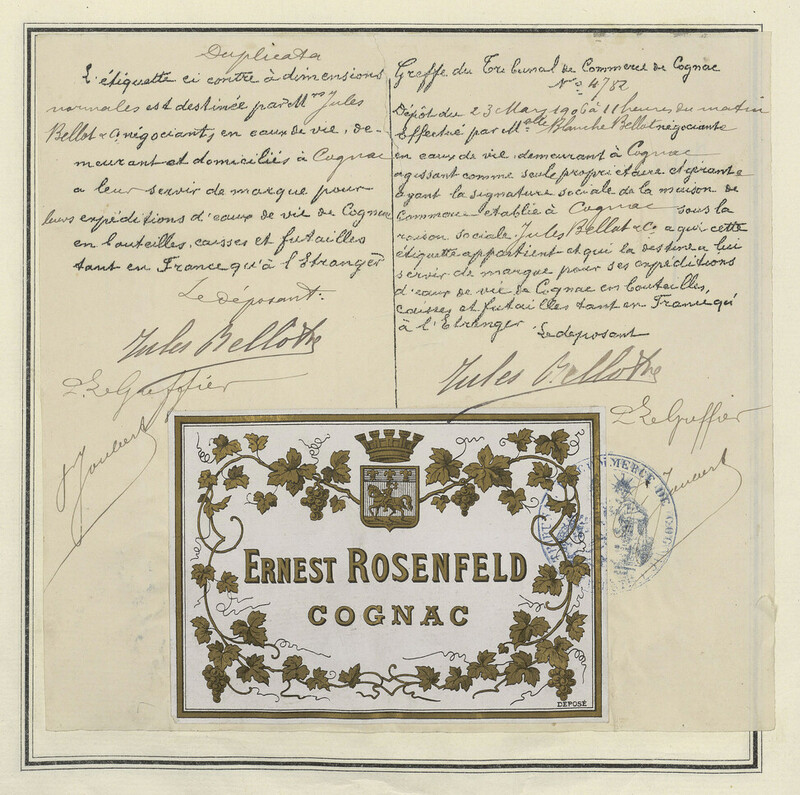 Duplicata
L'étiquette ci contre à dimensions
normales est destinée par Mrs Jules
Bellot & Co, négociants, en eaux de vie, de-
meurant et domiciliés à Cognac
a leur servir de marque pour
leurs expéditions d'eaux de vie de Cognac
en bouteilles, caisses et futailles
tant en France qu'à l'Etranger
Le déposant:
Jules Bellot & Co
Le Greffier
Joubert
Greffe du Tribunal de Commerce de Cognac
No 4782
Dépôt du 23 Mars 1906 à 11 heures du matin
Effectué par Melle Blanche Bellot négociante
en eaux de vie, demeurant à Cognac
agissant comme seule propriétaire et gérante
ayant la signature sociale de la maison de
Commerce établie à Cognac sous la
raison sociale Jules Bellot & Co a qui cette
étiquette appartient et qui la destine a lui
servir de marque pour ses expéditions
d'eaux de vie de Cognac en bouteilles,
caisses et futailles tant en France qu'
à l'Etranger
Le deposant
Jules Bellot & Co
Le Greffier
Joubert
COMMERCE DE COGNAC
ERNEST ROSENFELD
COGNAC
DEPOSÉ